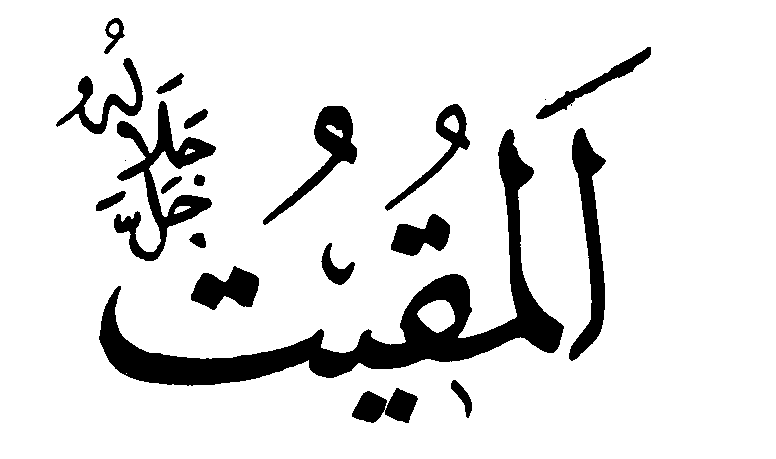 اَلْمُقِيتُ
جَلَّ جَلَالُهُ